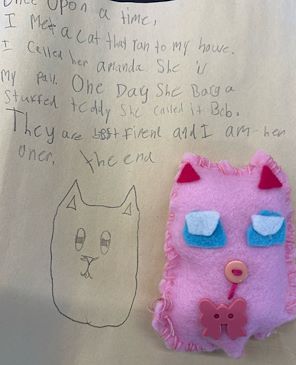 Once Upon a time,
I Met a cat that ran to my house.
I called her amanda. She is
my pall. One Day She Bag a
stuffed teddy She called it Bob.
They are best firend and I am her
oner. the end